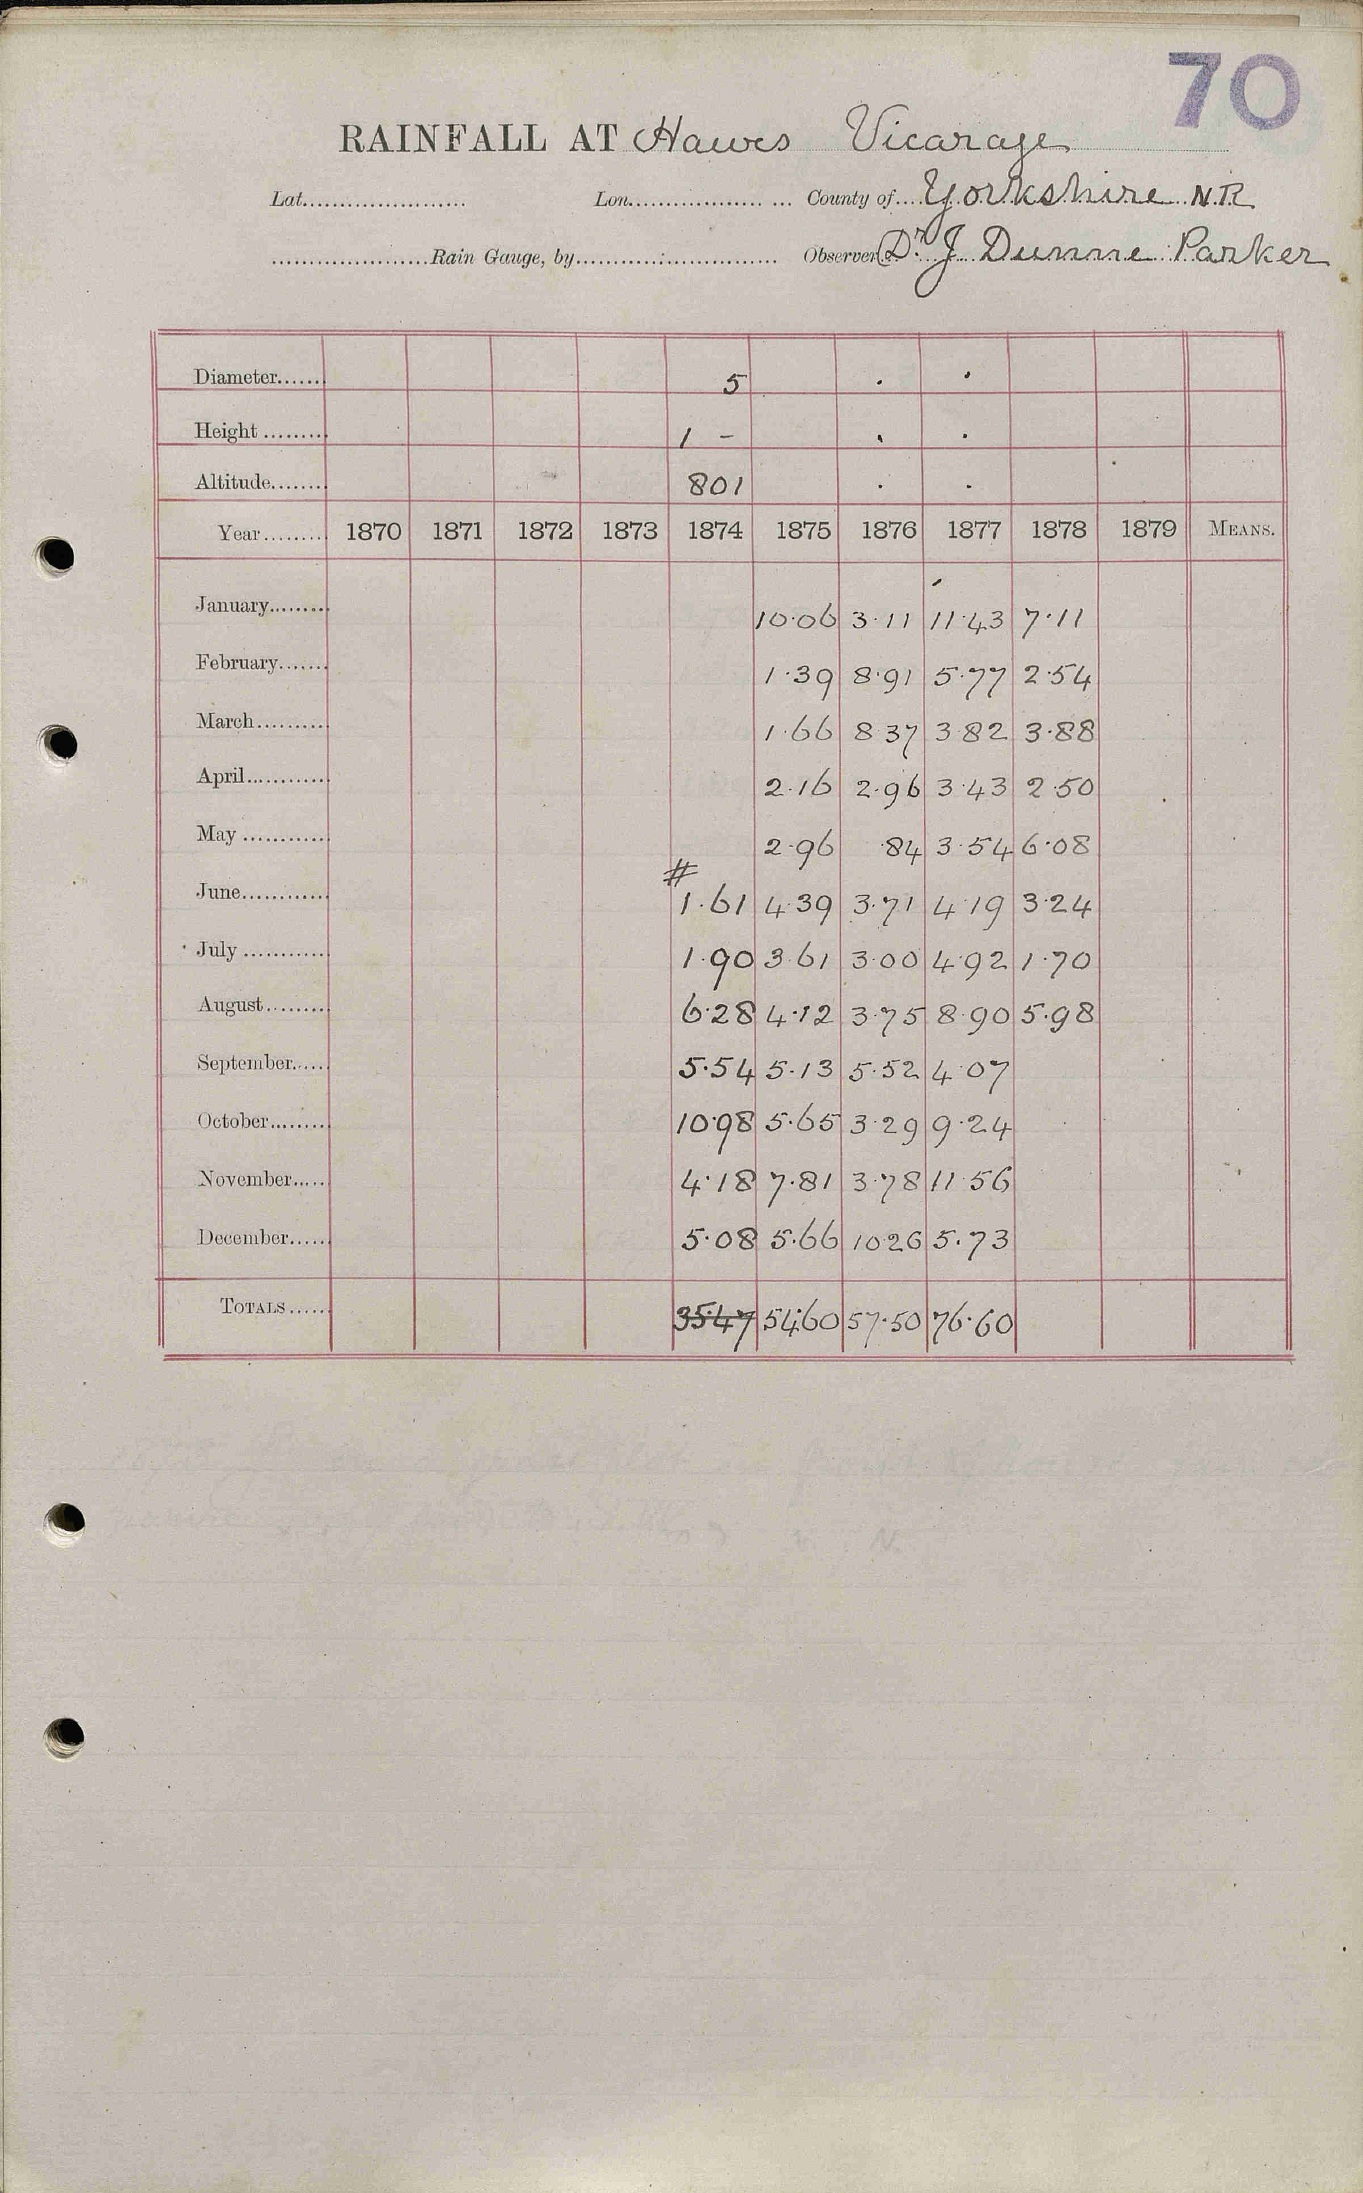 70
RAINFALL AT Hawes Vicarage
Lat...................... Lon.................. ... County of.... Yorkshire N.R.
.....................Rain Gauge, by............................ Observer Dr. J Dunne Parker
Diameter...... 5 . .
Height ......... 1 - . .
Altitude........ 801 . .
Year......... 1870 1871 1872 1873 1874 1875 1876 1877 1878 1879 MEANS.
January......... 10·06 3·11 11·43 7·11
February....... 1·39 8·91 5·77 2·54
March.......... 1·66 8 37 3 82 3·88
April............ 2·16 2·96 3·43 2·50
May ............ 2·96 ·84 3·54 6·08
#
June............ 1·61 4·39 3·71 4·19 3·24
July ........... 1·90 3·61 3·00 4·92 1·70
August......... 6·28 4·12 3·75 8·90 5·98
September...... 5·54 5·13 5·52 4·07
October........ 10·98 5·65 3·29 9·24
November..... 4·18 7·81 3·78 11·56
December...... 5·08 5·66 10·26 5·73
TOTALS...... 35·47 54·60 57·50 76·60